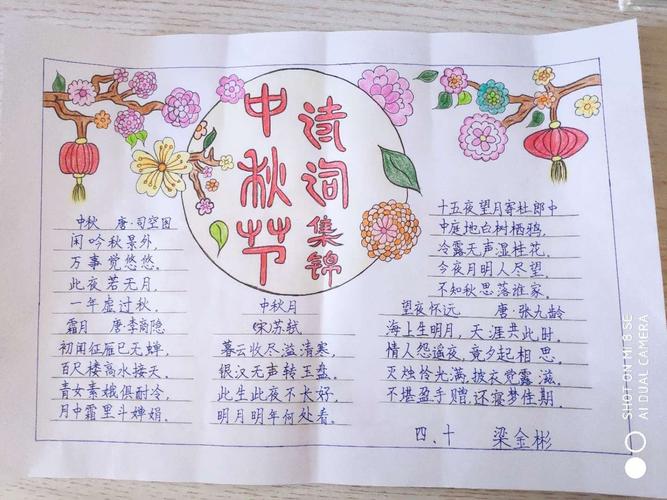 中秋节
诗词集锦
中秋 唐·司空图
闲吟秋景外,
万事觉悠悠。
此夜若无月,
一年虚过秋。
霜月 唐·李商隐
初闻征雁已无蝉,
百尺楼高水接天。
青女素娥俱耐冷,
月中霜里斗婵娟。
中秋月
(宋)苏轼
暮云收尽溢清寒,
银汉无声转玉盘。
此生此夜不长好,
明月明年何处看。
十五夜望月寄杜郎中
中庭地白树栖鸦,
冷露无声湿桂花。
今夜月明人尽望。
不知秋思落谁家。
望夜怀远 唐·张九龄
海上生明月,天涯共此时。
情人怨遥夜,竟夕起相思。
灭烛怜光满,披衣觉露滋。
不堪盈手赠,还寝梦佳期。
四、十 梁金彬
SHOT ON MI 8 SE
AI DUAL CAMERA